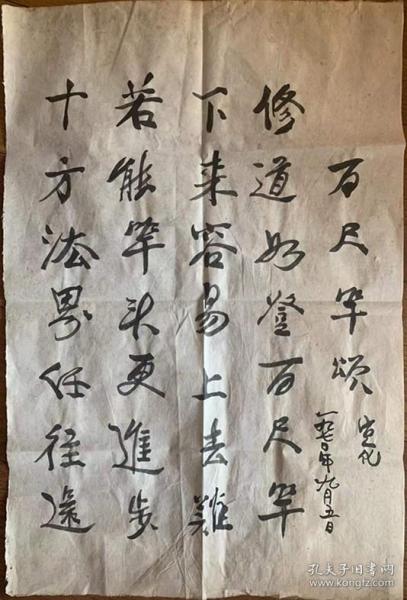 百尺竿頌
宣化
九月五日
修道如登百尺竿
下来容易上去難
若能竿头更進步
十方法界任往還
孔夫子旧书网
www.kongfz.com